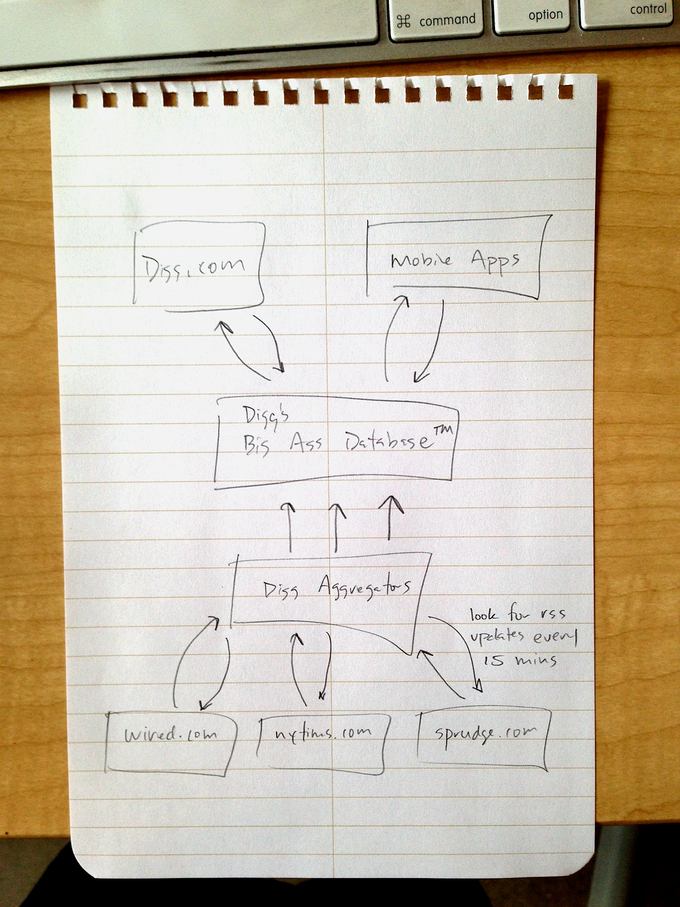 ⌘ command
option
control
Digg.com
Mobile Apps
Digg's
Big Ass Database™
Digg Aggregators
look for rss
updates every
15 mins
wired.com
nytims.com
sprudge.com